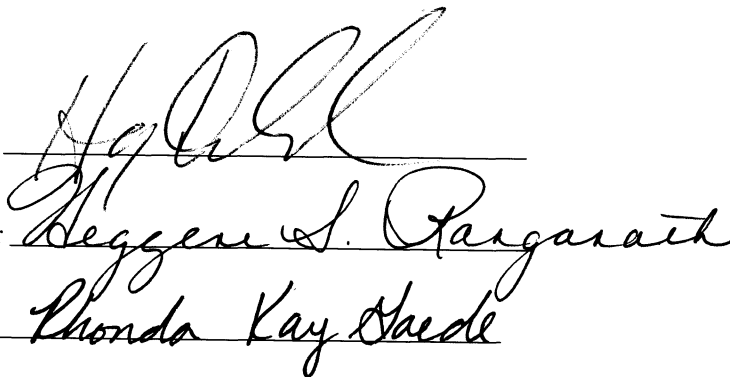 Heggere S. Ranganath
Rhonda Kay Gaede